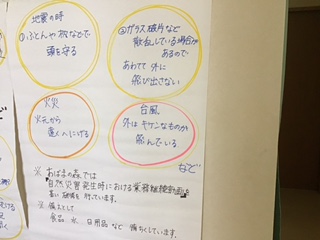 地震の時
①ふとんや枕などで
頭を守る
②ガラス破片など
散乱している場合が
あるので
あわてて外に
飛び出さない
火災
火元から
遠くへにげる
台風
外はキケンなものが
飛んでいる
など
※ あばまの森では
自然災害発生時における業務継続計画
※ 備えとして
食品、水、日用品など 備ちくしています。